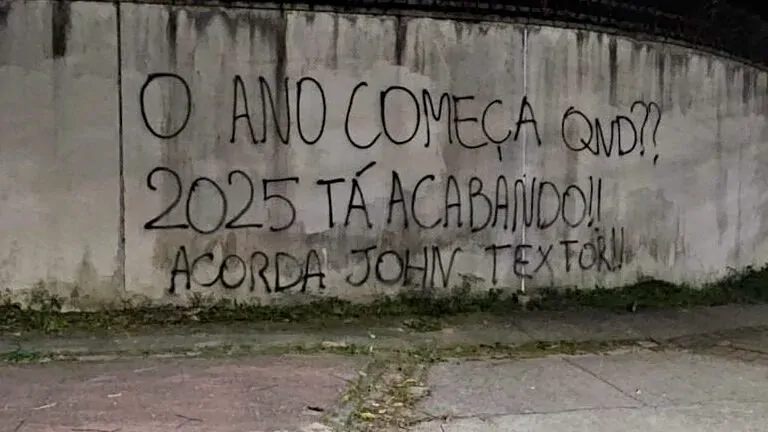 O ANO COMEÇA QND??
2025 TÁ ACABANDO!!
ACORDA JOHN TEXTOR!!